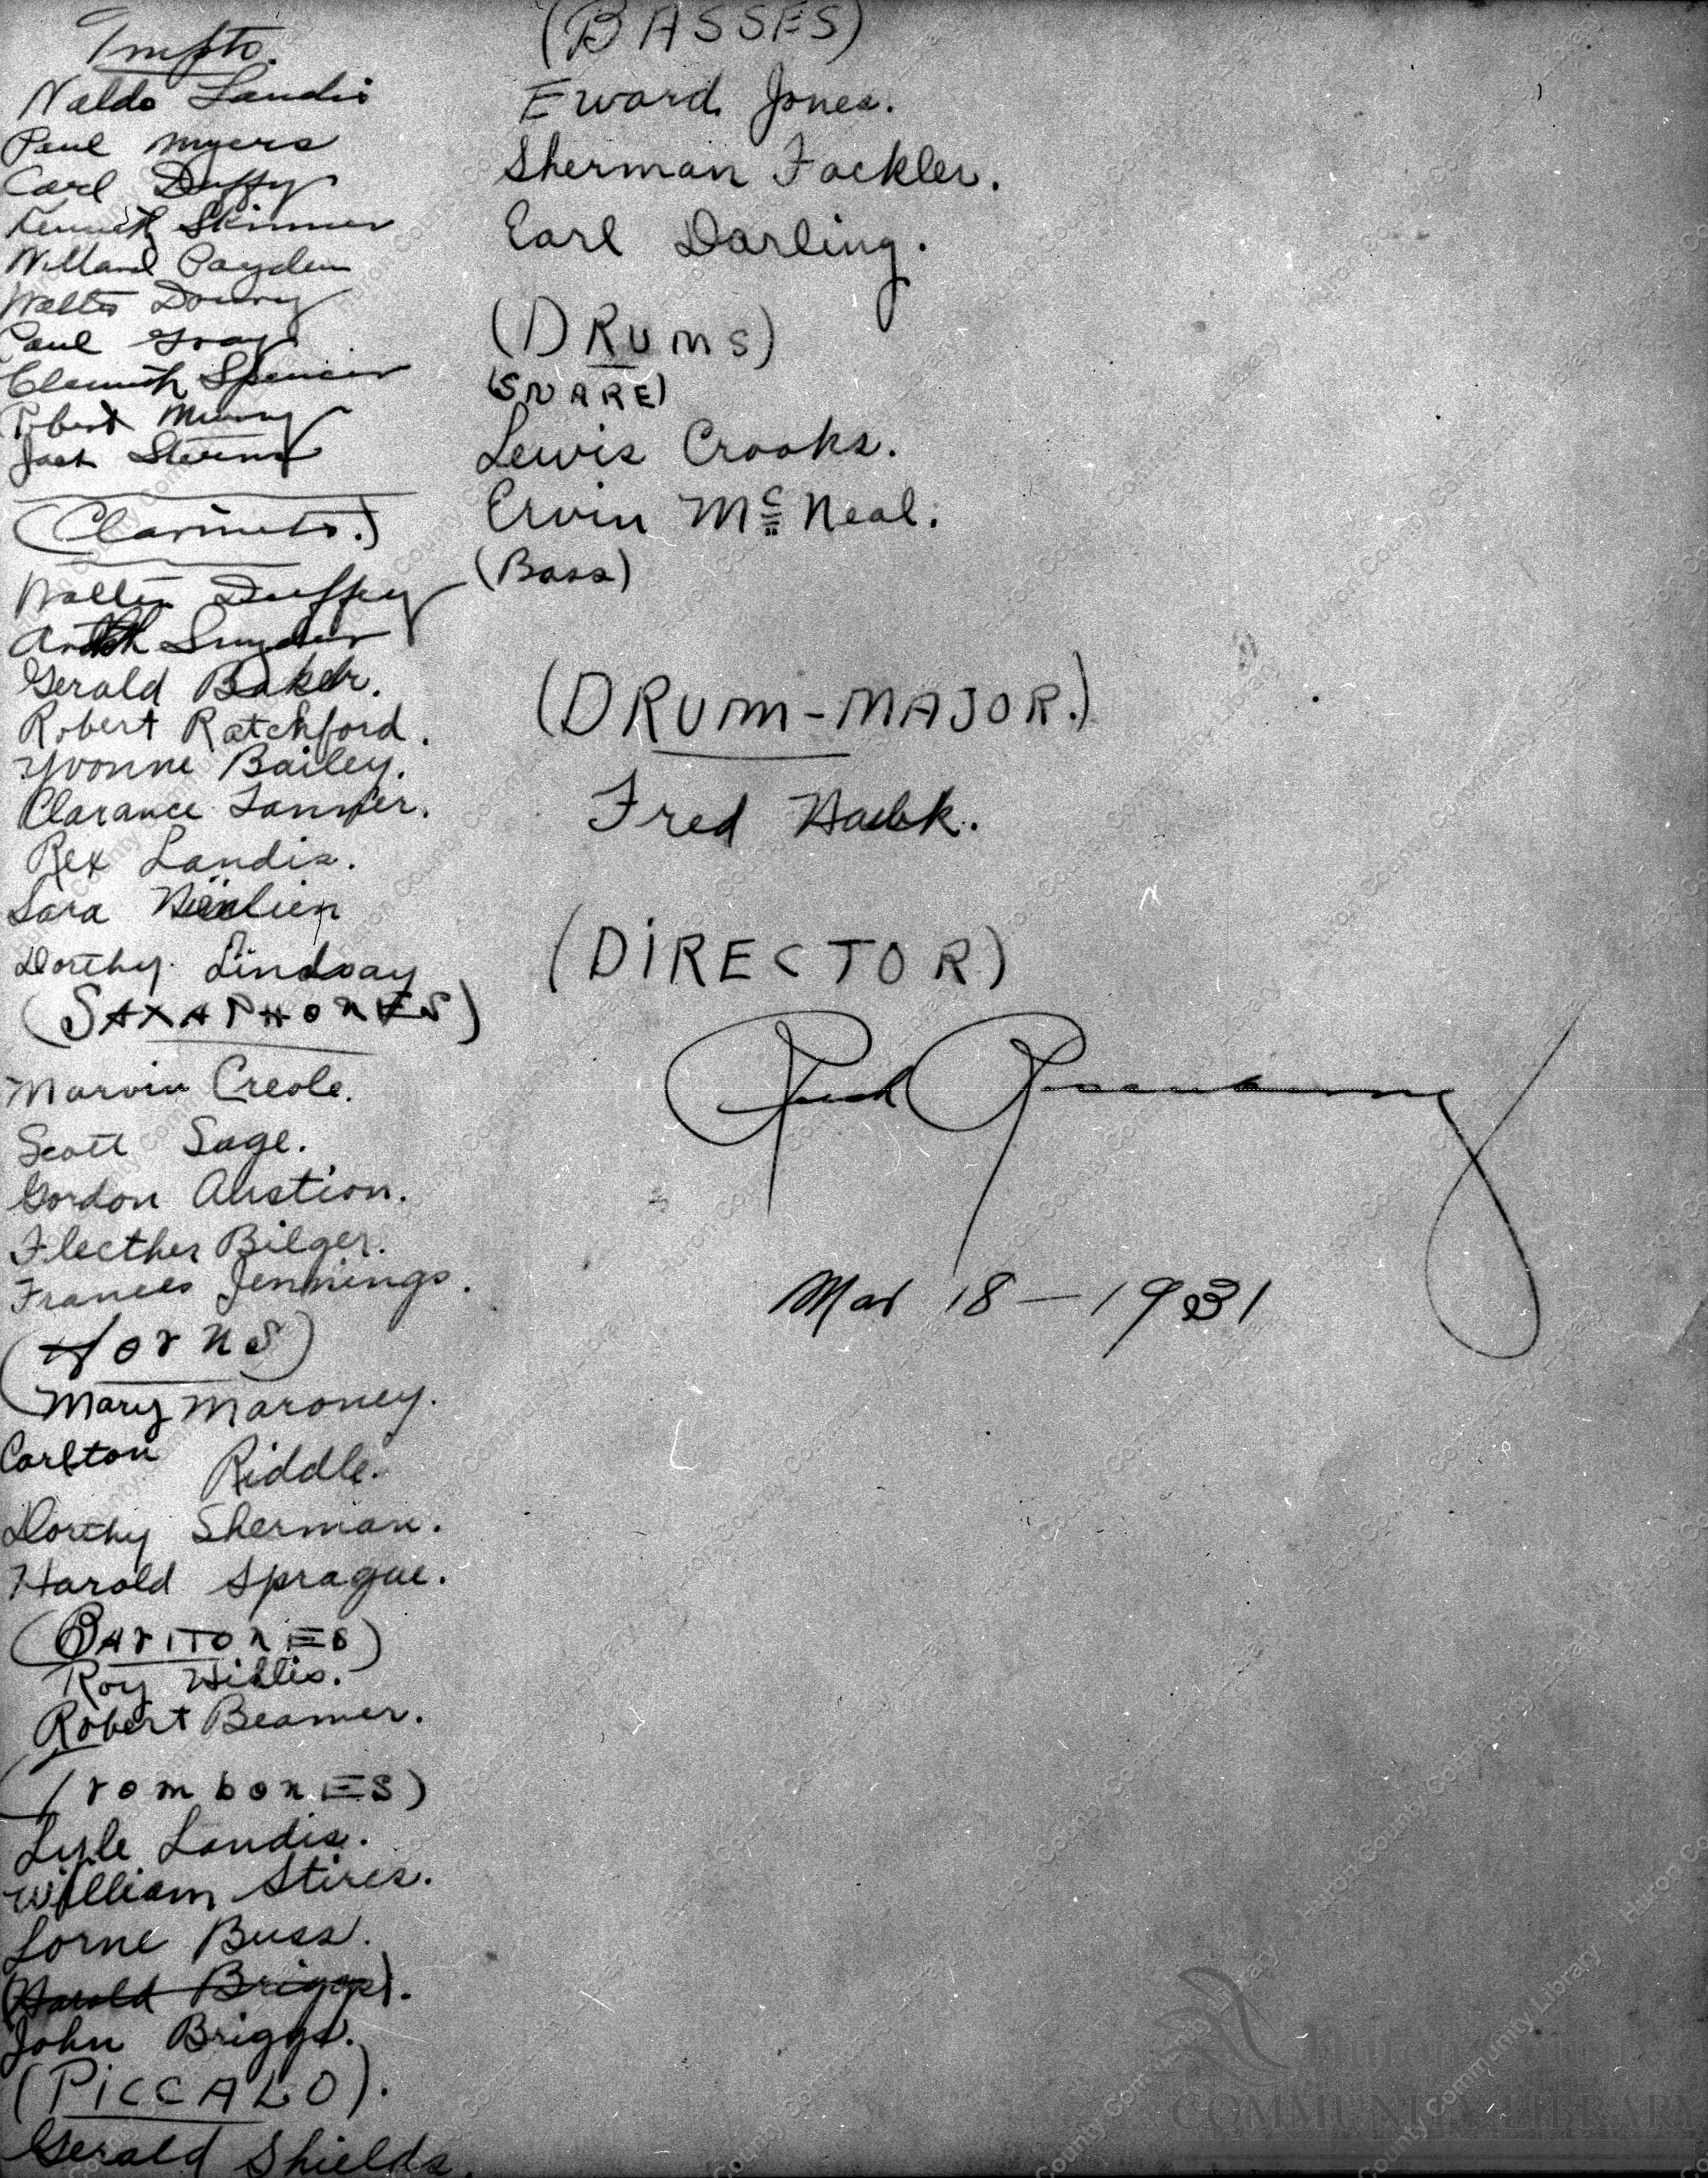 Tmpts.
Naldo Landis
Paul Myers
Carl Duffy
Kenneth Skinner
Willard Payden
Walter Downy
Paul Gray
Spencer
Robert Murry
Jack Sterns
(Clarinets.)
Walter Duffey
Snyder
Gerald Baker.
Robert Ratchford.
Yvonne Bailey.
Clarance
Rex Landis.
Sara
Dorthy. Lindsay
(SAXAPHONES)
Marvin Creole.
Scott Sage.
Gordon Austion.
Flecther Bilger.
Frances Jennings.
(Horns)
Mary Maroney.
Carlton Riddle.
Dorthy Sherman.
Harold Sprague.
(BAriTOnES)
Roy Willis.
Robert Beamer.
(TrombonES)
Lyle Landis.
William Stires.
Lorne Buss.
(Harold Briggs).
John Briggs.
(PiCCALO).
Gerald Shields.
(BASSES)
Eward Jones.
Sherman Fackler.
Earl Darling.
(DRUmS)
(SNARE)
Lewis Crooks.
Ervin McNeal.
(Bass)
(DRUm-MAJOR.)
Fred
(DiRECTOR)
Mar 18 - 1931
Huron County
COMMUNITY LIBRARY